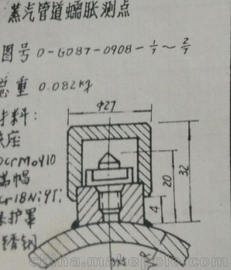 蒸汽管道蠕胀测点
图号 0-G087-0908-1/7~2/7
总重 0.082kg
材料:
座
CrMo910
帽
Cr18Ni9Ti
护罩
锈钢
Φ27
4
20
32